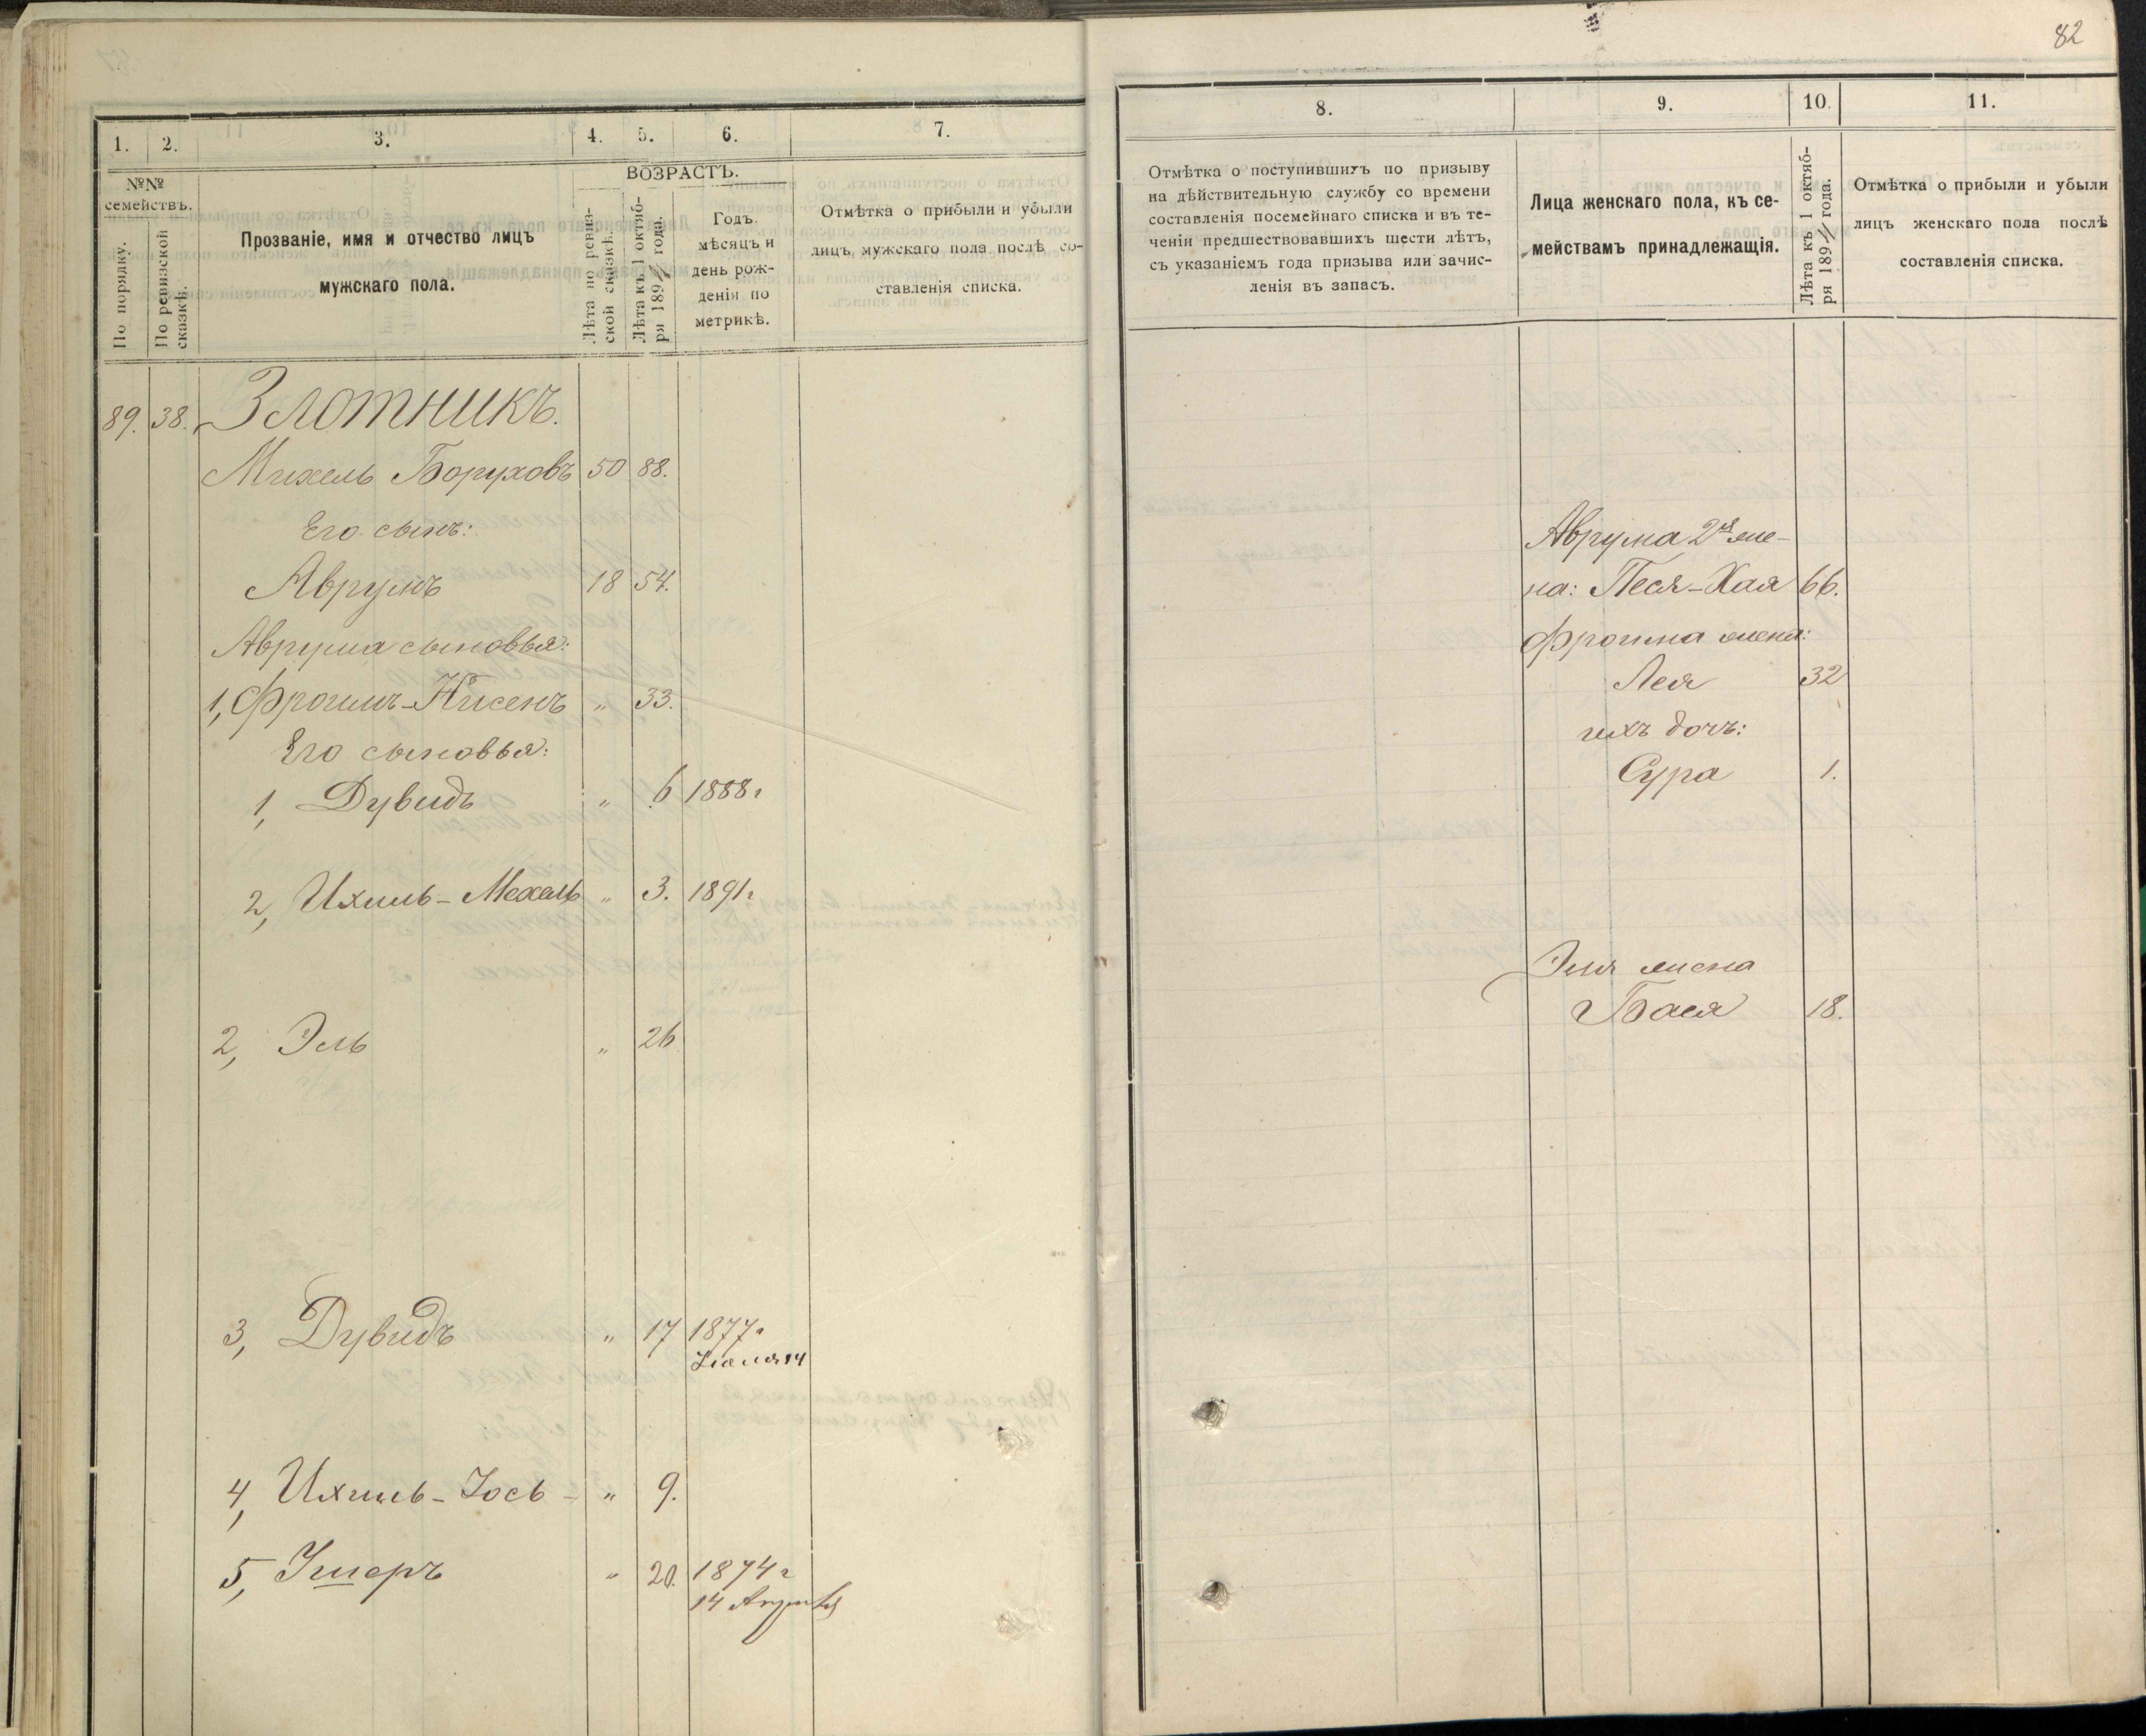 82
1.
2.
3.
4.
5.
6.
7.
№№
семействъ.
По порядку.
По ревизской
сказкѣ.
Прозваніе, имя и отчество лицъ
мужскаго пола.
ВОЗРАСТЪ.
Лѣта по ревиз-
ской сказкѣ.
Лѣта къ 1 октяб-
ря 1894 года.
Годъ,
мѣсяцъ и
день рож-
денія по
метрикѣ.
Отмѣтка о прибыли и убыли
лицъ мужскаго пола послѣ со-
ставленія списка.
89. 38. Злотникъ.
Михель Боруховъ 50 88.
Его сынъ:
Аврумъ 18 54.
Аврума сыновья:
1, Фроимъ-Нисенъ " 33.
Его сыновья:
1, Дувидъ " 6 1888 г
2, Ихиль-Мехель " 3. 1891 г
2, Эль " 26
3, Дувидъ " 17 1877 г
Іюля 14
4, Ихиль-Іось - " 9.
5, Ушеръ " 20. 1874 г
14 Августа
8.
9.
10.
11.
Отмѣтка о поступившихъ по призыву
на дѣйствительную службу со времени
составленія посемейнаго списка и въ те-
ченіи предшествовавшихъ шести лѣтъ,
съ указаніемъ года призыва или зачис-
ленія въ запасъ.
Лица женскаго пола, къ се-
мействамъ принадлежащія.
Лѣта къ 1 октяб-
ря 1894 года.
Отмѣтка о прибыли и убыли
лицъ женскаго пола послѣ
составленія списка.
Аврума 2я же-
на: Песя-Хая 66.
Фроима жена:
Лея 32
ихъ дочь:
Сура 1.
Эля жена
Бася 18.